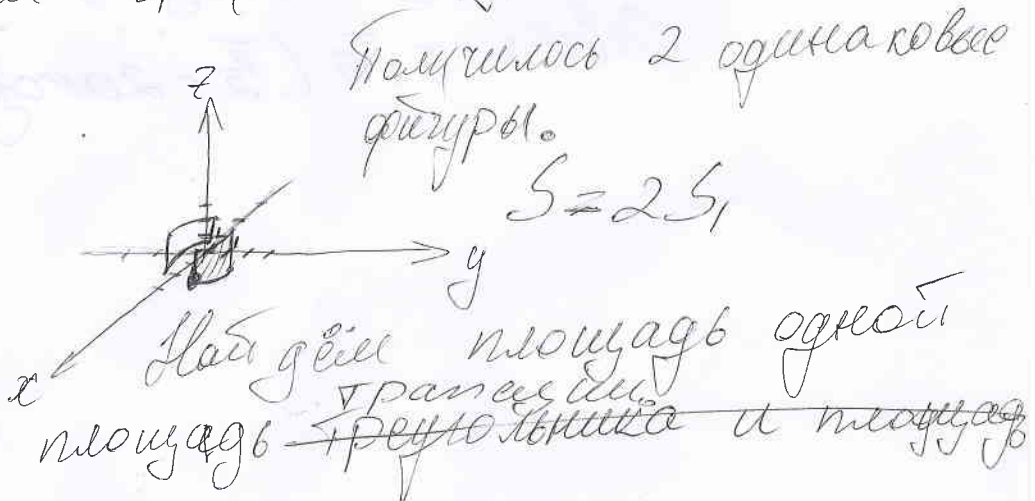 Получилось 2 одинаковые
фигуры.
z
S = 2S₁
y
x
Найдём площадь одной
трапеции.
площадь треугольника и площадь